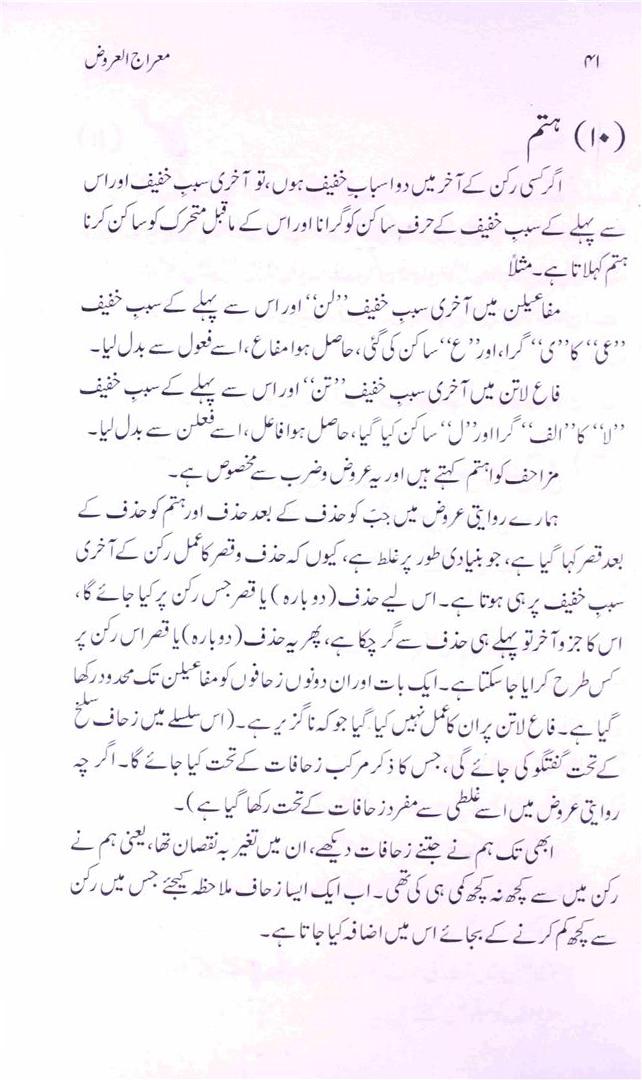 ۴۱ معراج العروض
(۱۰) ہتم
اگر کسی رکن کے آخر میں دو اسبابِ خفیف ہوں، تو آخری سببِ خفیف اور اس
سے پہلے کے سببِ خفیف کے حرفِ ساکن کو گرانا اور اس کے ماقبل متحرک کو ساکن کرنا
ہتم کہلاتا ہے۔ مثلاً
مفاعیلن میں آخری سببِ خفیف ’’لن‘‘ اور اس سے پہلے کے سببِ خفیف
’’عی‘‘ کا ’’ی‘‘ گرا، اور ’’ع‘‘ ساکن کی گئی، حاصل ہوا مفاع، اسے فعول سے بدل لیا۔
فاع لاتن میں آخری سببِ خفیف ’’تن‘‘ اور اس سے پہلے کے سببِ خفیف
’’لا‘‘ کا ’’الف‘‘ گرا اور ’’ل‘‘ ساکن کیا گیا، حاصل ہوا فاعل، اسے فعلن سے بدل لیا۔
مزاحف کو اہتم کہتے ہیں اور یہ عروض و ضرب سے مخصوص ہے۔
ہمارے روایتی عروض میں جبّ کو حذف کے بعد حذف اور ہتم کو حذف کے
بعد قصر کہا گیا ہے، جو بنیادی طور پر غلط ہے، کیوں کہ حذف و قصر کا عمل رکن کے آخری
سببِ خفیف پر ہی ہوتا ہے۔ اس لیے حذف (دوبارہ) یا قصر جس رکن پر کیا جائے گا،
اس کا جزوِ آخر تو پہلے ہی حذف سے گر چکا ہے، پھر یہ حذف (دوبارہ) یا قصر اس رکن پر
کس طرح کرایا جا سکتا ہے۔ ایک بات اور ان دونوں زحافوں کو مفاعیلن تک محدود رکھا
گیا ہے۔ فاع لاتن پر ان کا عمل نہیں کیا گیا جو کہ ناگزیر ہے۔ (اس سلسلے میں زحاف سلخ
کے تحت گفتگو کی جائے گی، جس کا ذکر مرکب زحافات کے تحت کیا جائے گا۔ اگر چہ
روایتی عروض میں اسے غلطی سے مفرد زحافات کے تحت رکھا گیا ہے)۔
ابھی تک ہم نے جتنے زحافات دیکھے، ان میں تغیر بہ نقصان تھا، یعنی ہم نے
رکن میں سے کچھ نہ کچھ کمی ہی کی تھی۔ اب ایک ایسا زحاف ملاحظہ کیجئے جس میں رکن
سے کچھ کم کرنے کے بجائے اس میں اضافہ کیا جاتا ہے۔